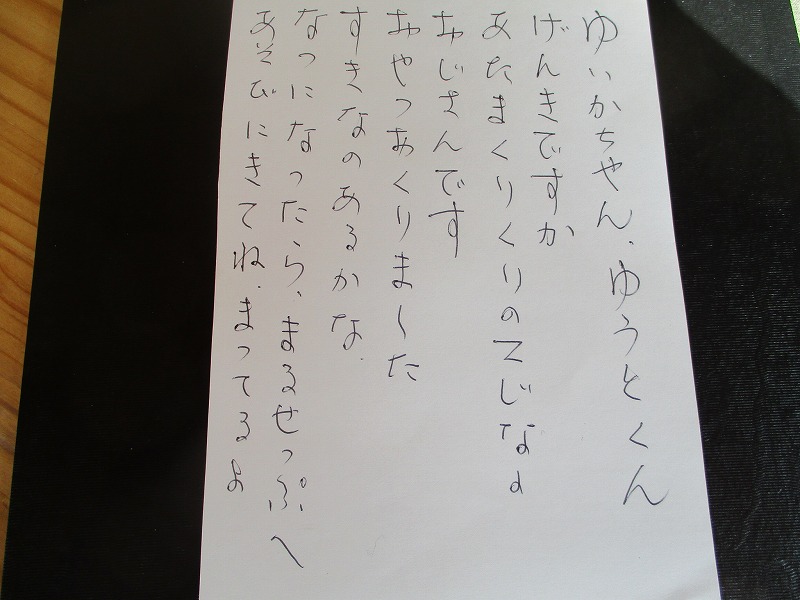 ゆいかちゃん．ゆうとくん
げんきですか
あたまくりくりのてじなの
おじさんです
おやつおくりました
すきなのあるかな．
なつになったら、まるぜっぷへ
あそびにきてね．まってるよ